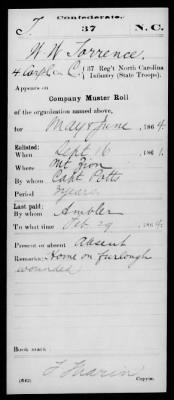 Confederate.
T 37 N.C.
W W Torrence
4 Corpl Co C, 37 Reg't North Carolina
Infantry (State Troops).
Appears on
Company Muster Roll
of the organization named above,
for May & June, 1864.
Enlisted:
When Sept 16, 1861.
Where Mt Zion
By whom Capt Potts
Period 3 years
Last paid:
By whom Ambler
To what time Feb 29, 1864.
Present or absent Absent
Remarks: Home on furlough
wounded
Book mark:
(642) Copyist.